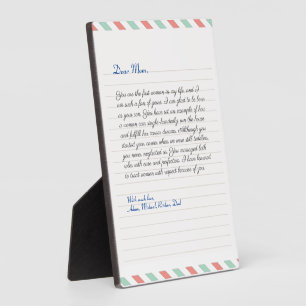 Dear Mom,
You are the first woman in my life, and I
am such a fan of yours. I am glad to be born
as your son. You have set an example of how
a woman can single-handedly run the house
and fulfill her career dreams. Although you
started your career when we were still toddlers,
you never neglected us. You managed both
roles with ease and perfection. I have learned
to treat women with respect because of you.
With much love,
Adam, Michael, Richard, Dad